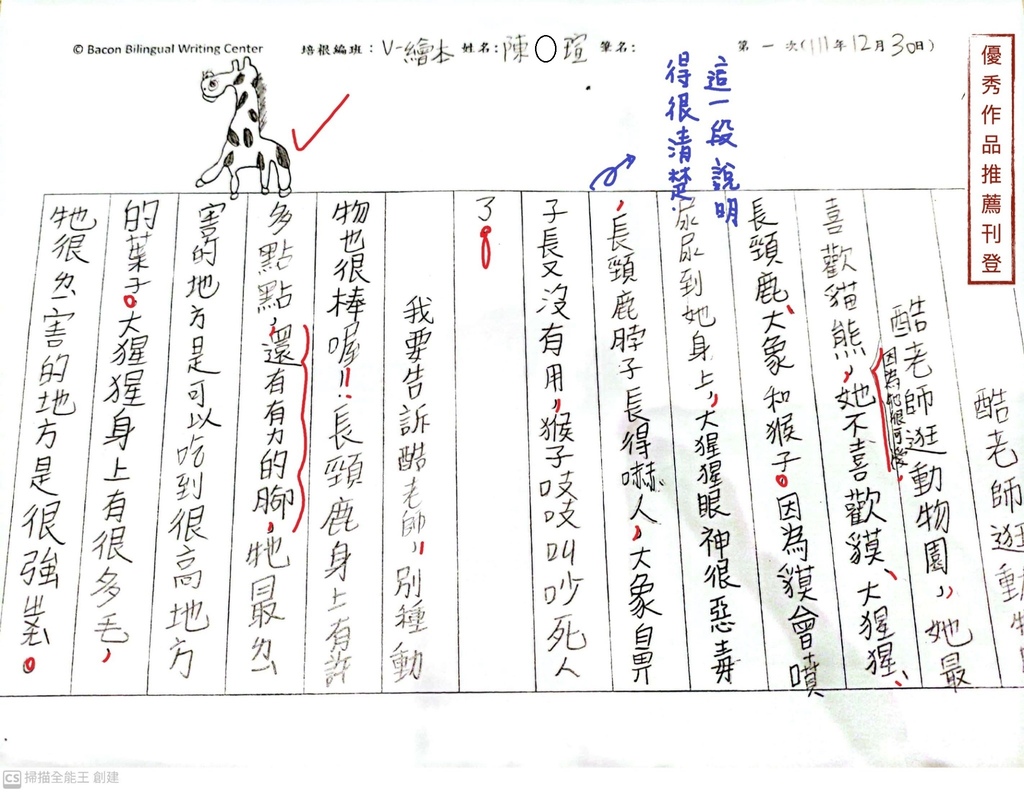 © Bacon Bilingual Writing Center 培根編班：V-繪本 姓名：陳○瑄 筆名： 第一次(111年12月30日)
優秀作品推薦刊登
這一段說明
得很清楚
酷老師逛動物
酷老師逛動物園，她最
因為牠很可愛，
喜歡貓熊，她不喜歡貘、大猩猩、
長頸鹿、大象和猴子。因為貘會噴
尿尿到她身上，大猩猩眼神很惡毒
，長頸鹿脖子長得嚇人，大象鼻
子長又沒有用，猴子吱吱叫吵死人
了。
我要告訴酷老師，別種動
物也很棒喔！長頸鹿身上有許
多點點，還有有力的腳，牠最ㄌㄧˋ
害的地方是可以吃到很高地方
的葉子。大猩猩身上有很多毛，
牠很ㄌㄧˋ害的地方是很強壯。
CS 掃描全能王 創建